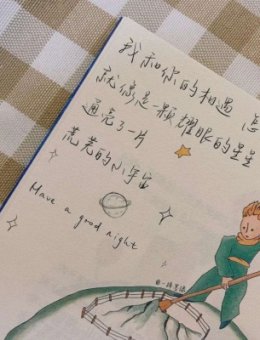 我和你的相遇 怎
就像是一颗耀眼的星星
通亮了一片
荒芜的小宇宙
Have a good night